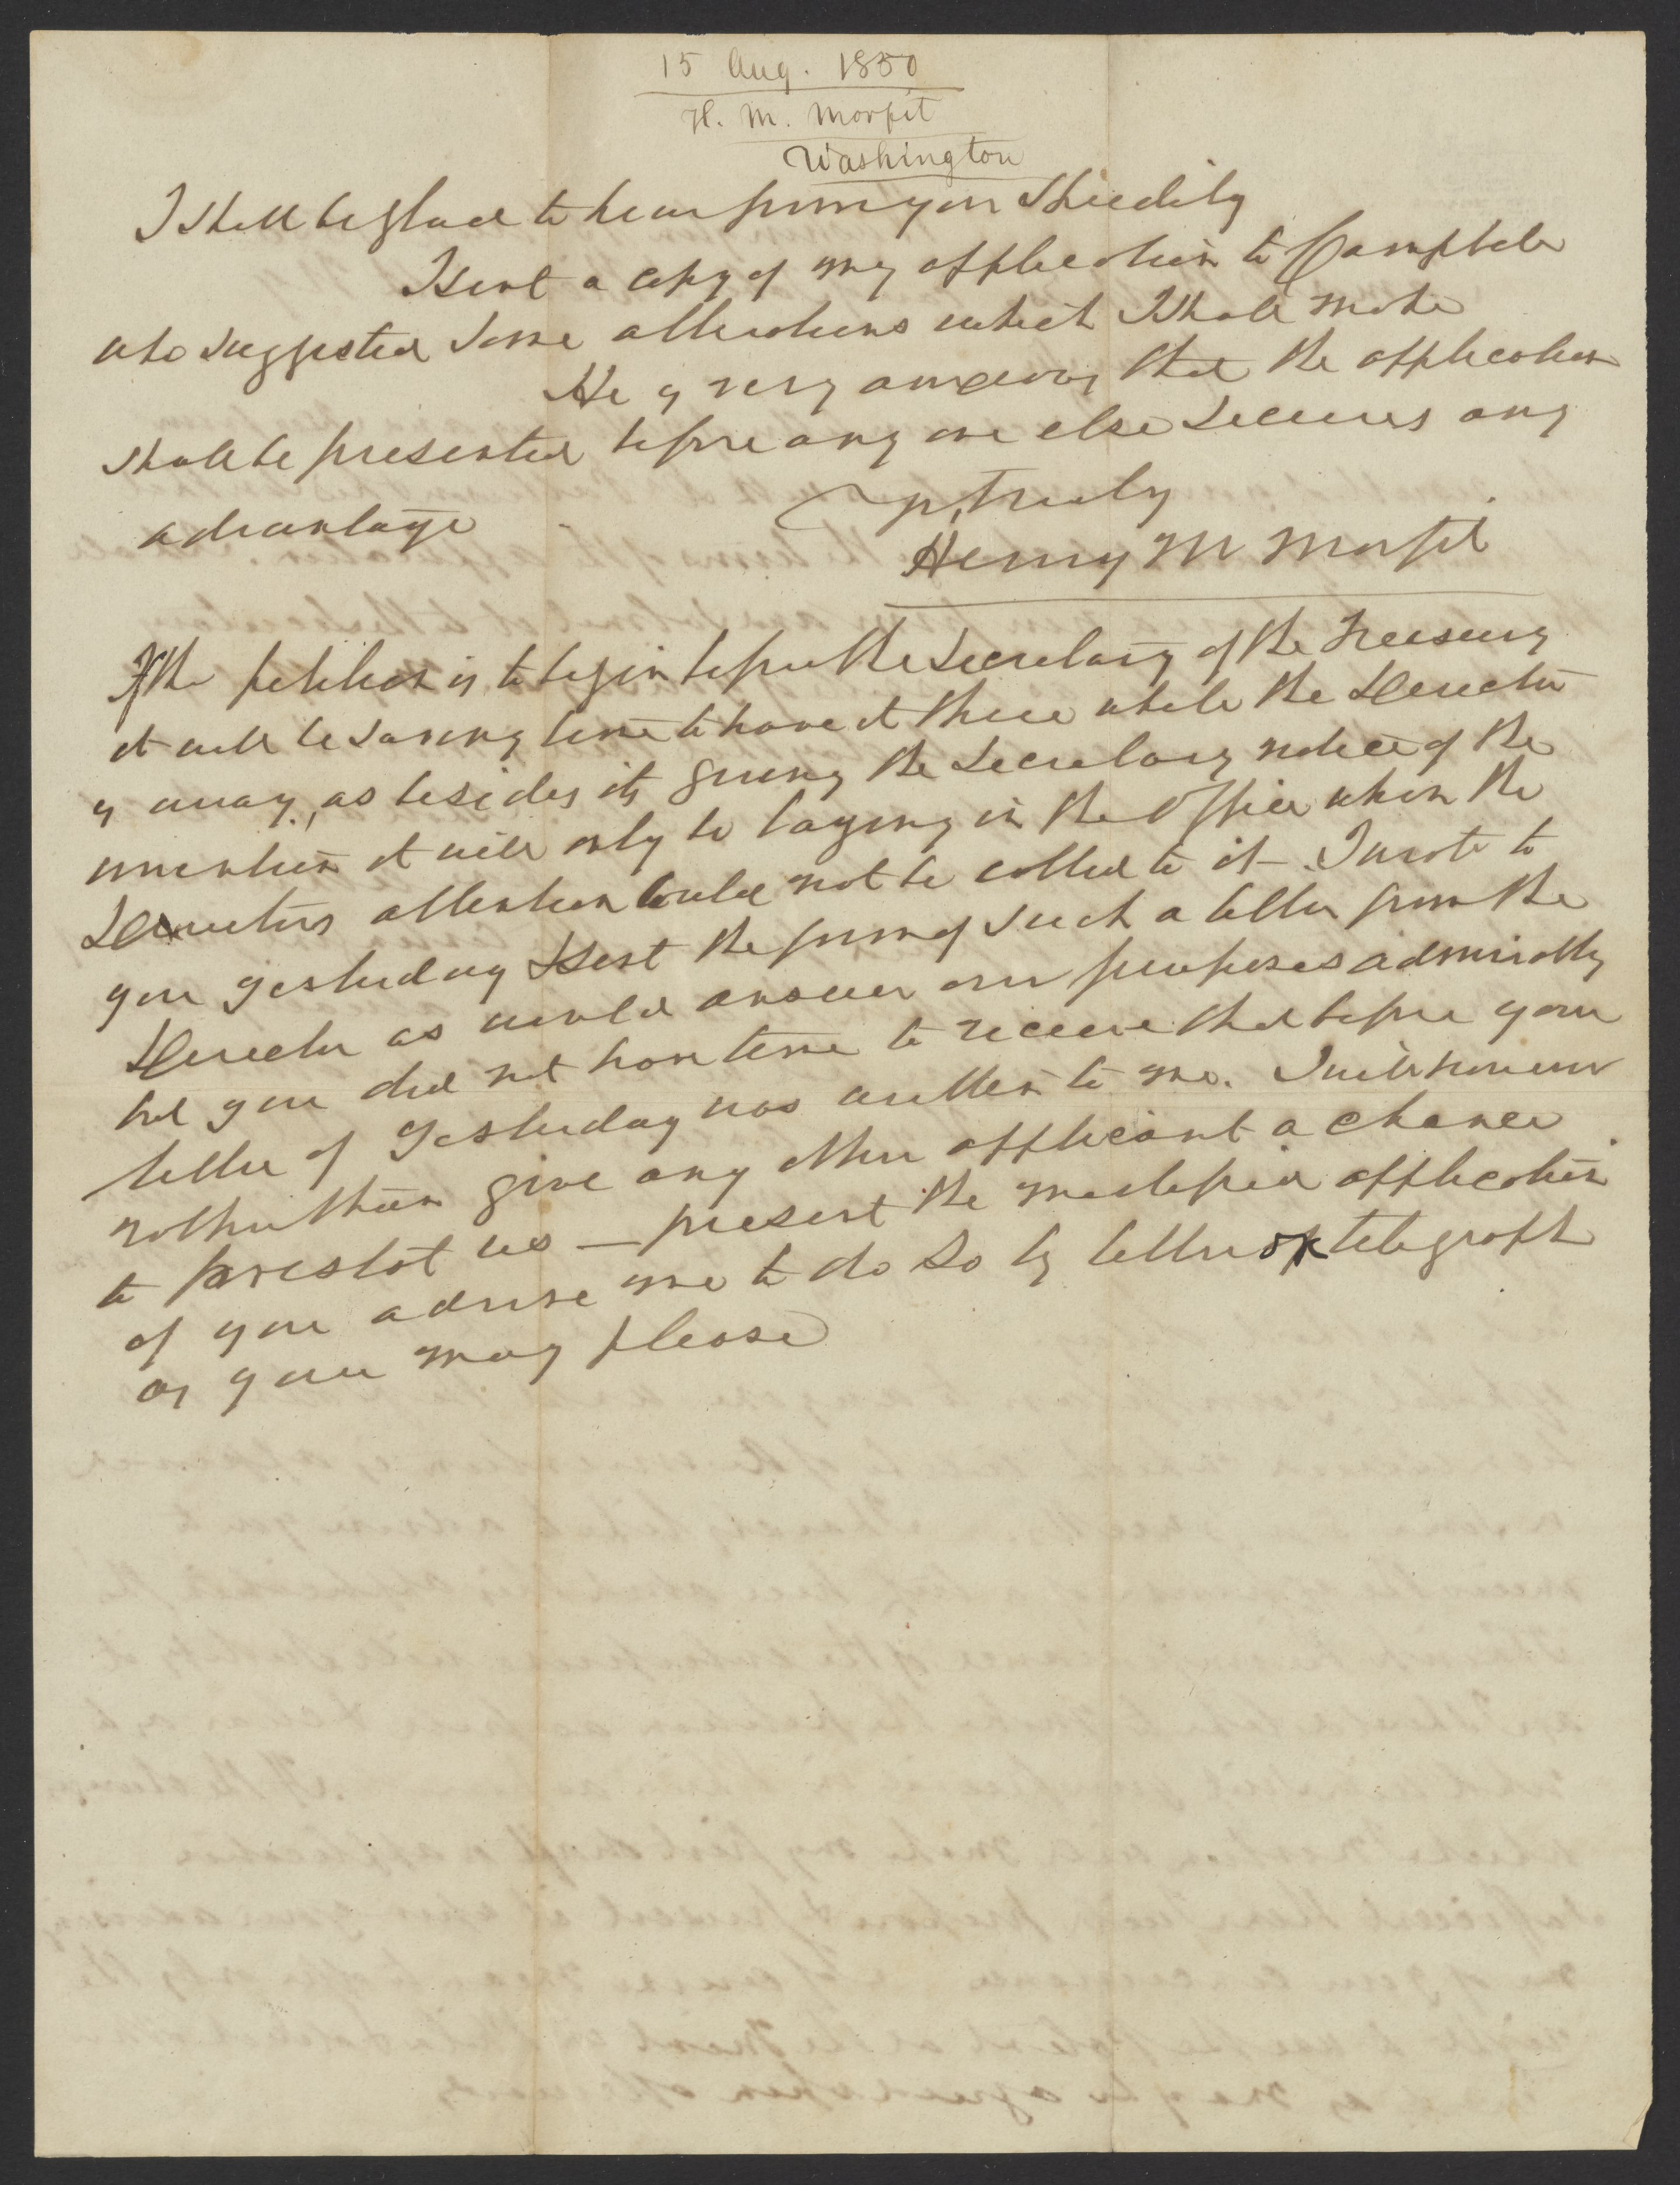 15 Aug. 1850
H. M. Morfit
Washington
I shall be glad to hear from you speedily
I sent a copy of my application to Campbell
who suggested some alterations which I shall make
He is very anxious that the application
shall be presented before any one else secures any
advantage
truly
Henry M Morfit
If the petition is to begin before the Secretary of the Treasury
it will be saving time to have it there while the Director
is away, as besides its giving the Secretary notice of the
invention it will only be laying in the Office when the
Directors attention could not be called to it - I wrote to
you yesterday & sent the form of such a letter from the
Director as would answer our purposes admirably
but you did not have time to receive that before your
letter of yesterday was written to me. I will however
rather than give any other applicant a chance
to forestal us — present the modified application
if you advise me to do so by letter or telegraph
as you may please